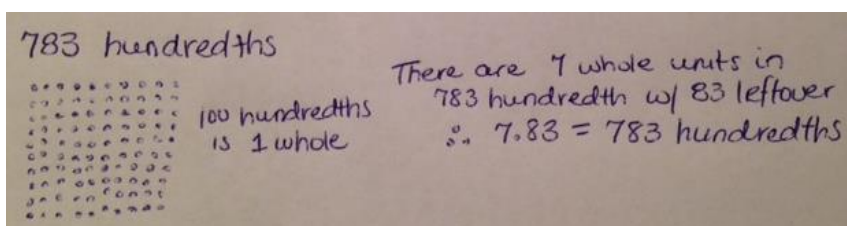 783 hundredths
100 hundredths
is 1 whole
There are 7 whole units in
783 hundredth w/ 83 leftover
∴ 7.83 = 783 hundredths